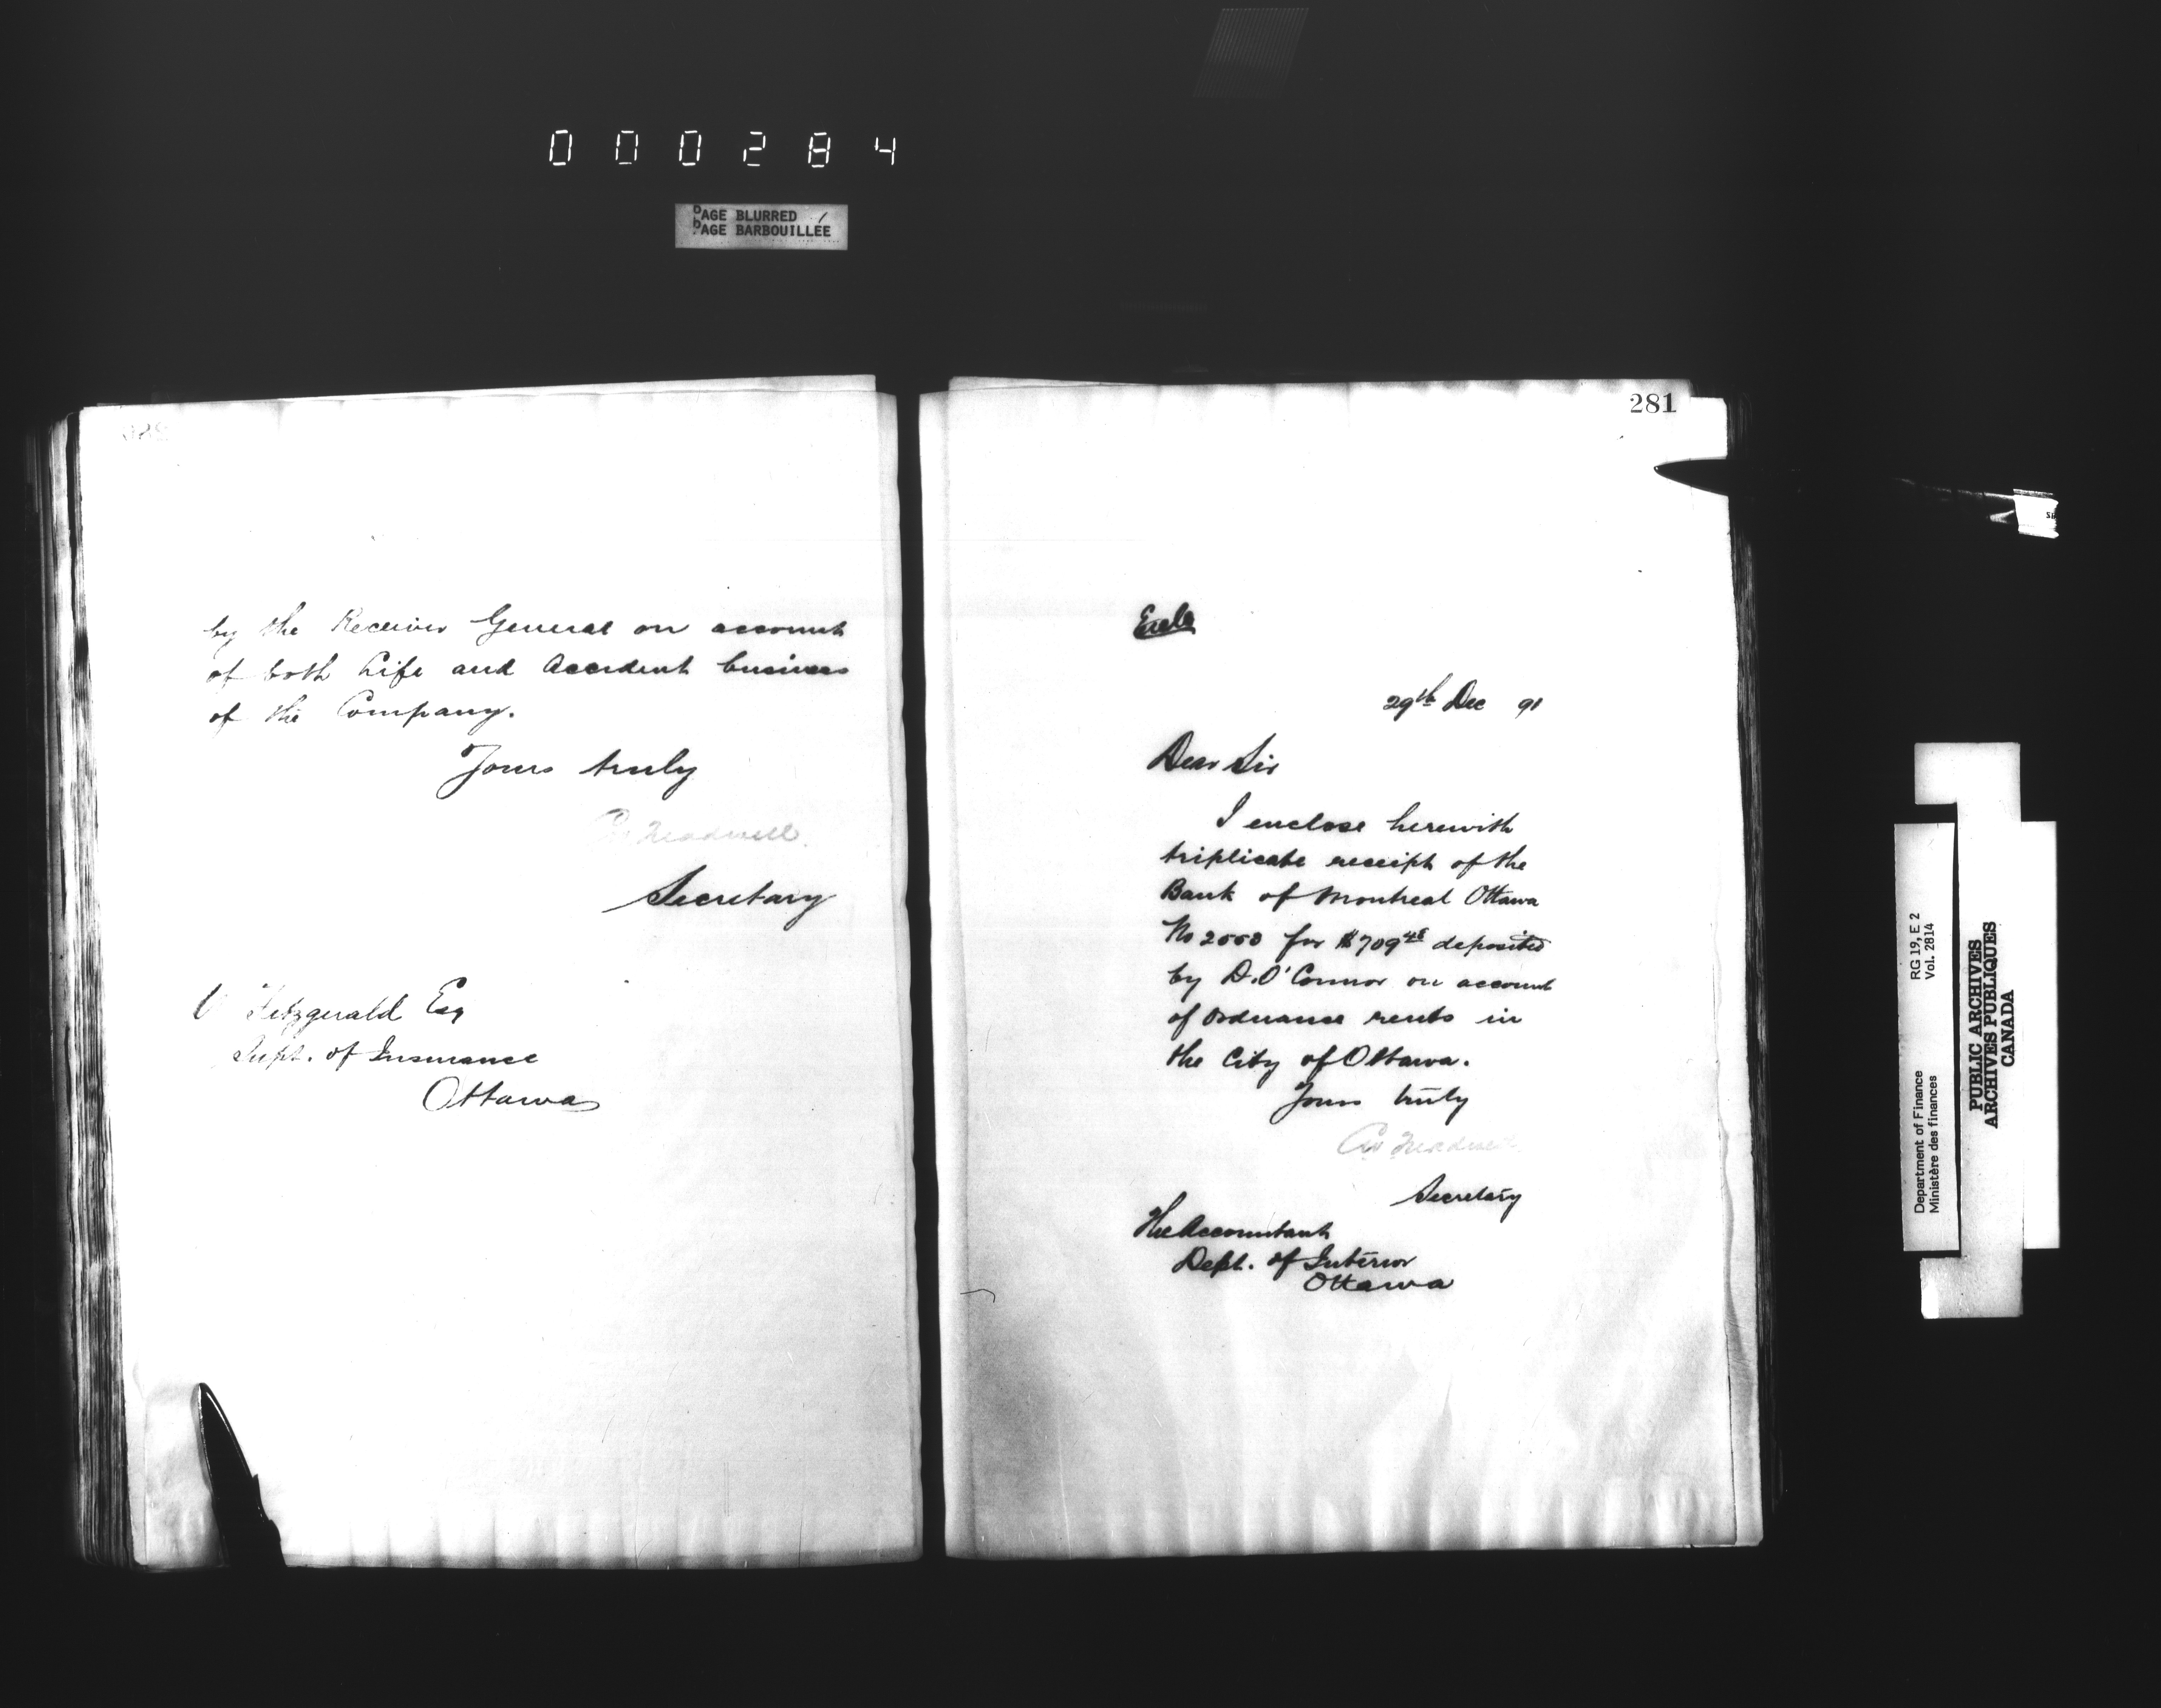 000284
PAGE BLURRED
PAGE BARBOUILLÉE
by the Receiver General on account
of both Life and Accident business
of the Company.
Yours truly
Secretary
W Fitzgerald Esq
Supt. of Insurance
Ottawa
281
Encls
29th Dec 91
Dear Sir
I enclose herewith
triplicate receipt of the
Bank of Montreal Ottawa
No for $709 48 deposited
by D. O'Connor on account
of Ordnance rents in
the City of Ottawa.
Yours truly
Secretary
The Accountant
Dept. of Interior
Ottawa
Department of Finance RG 19, E 2
Ministère des finances Vol. 2814
PUBLIC ARCHIVES
ARCHIVES PUBLIQUES
CANADA